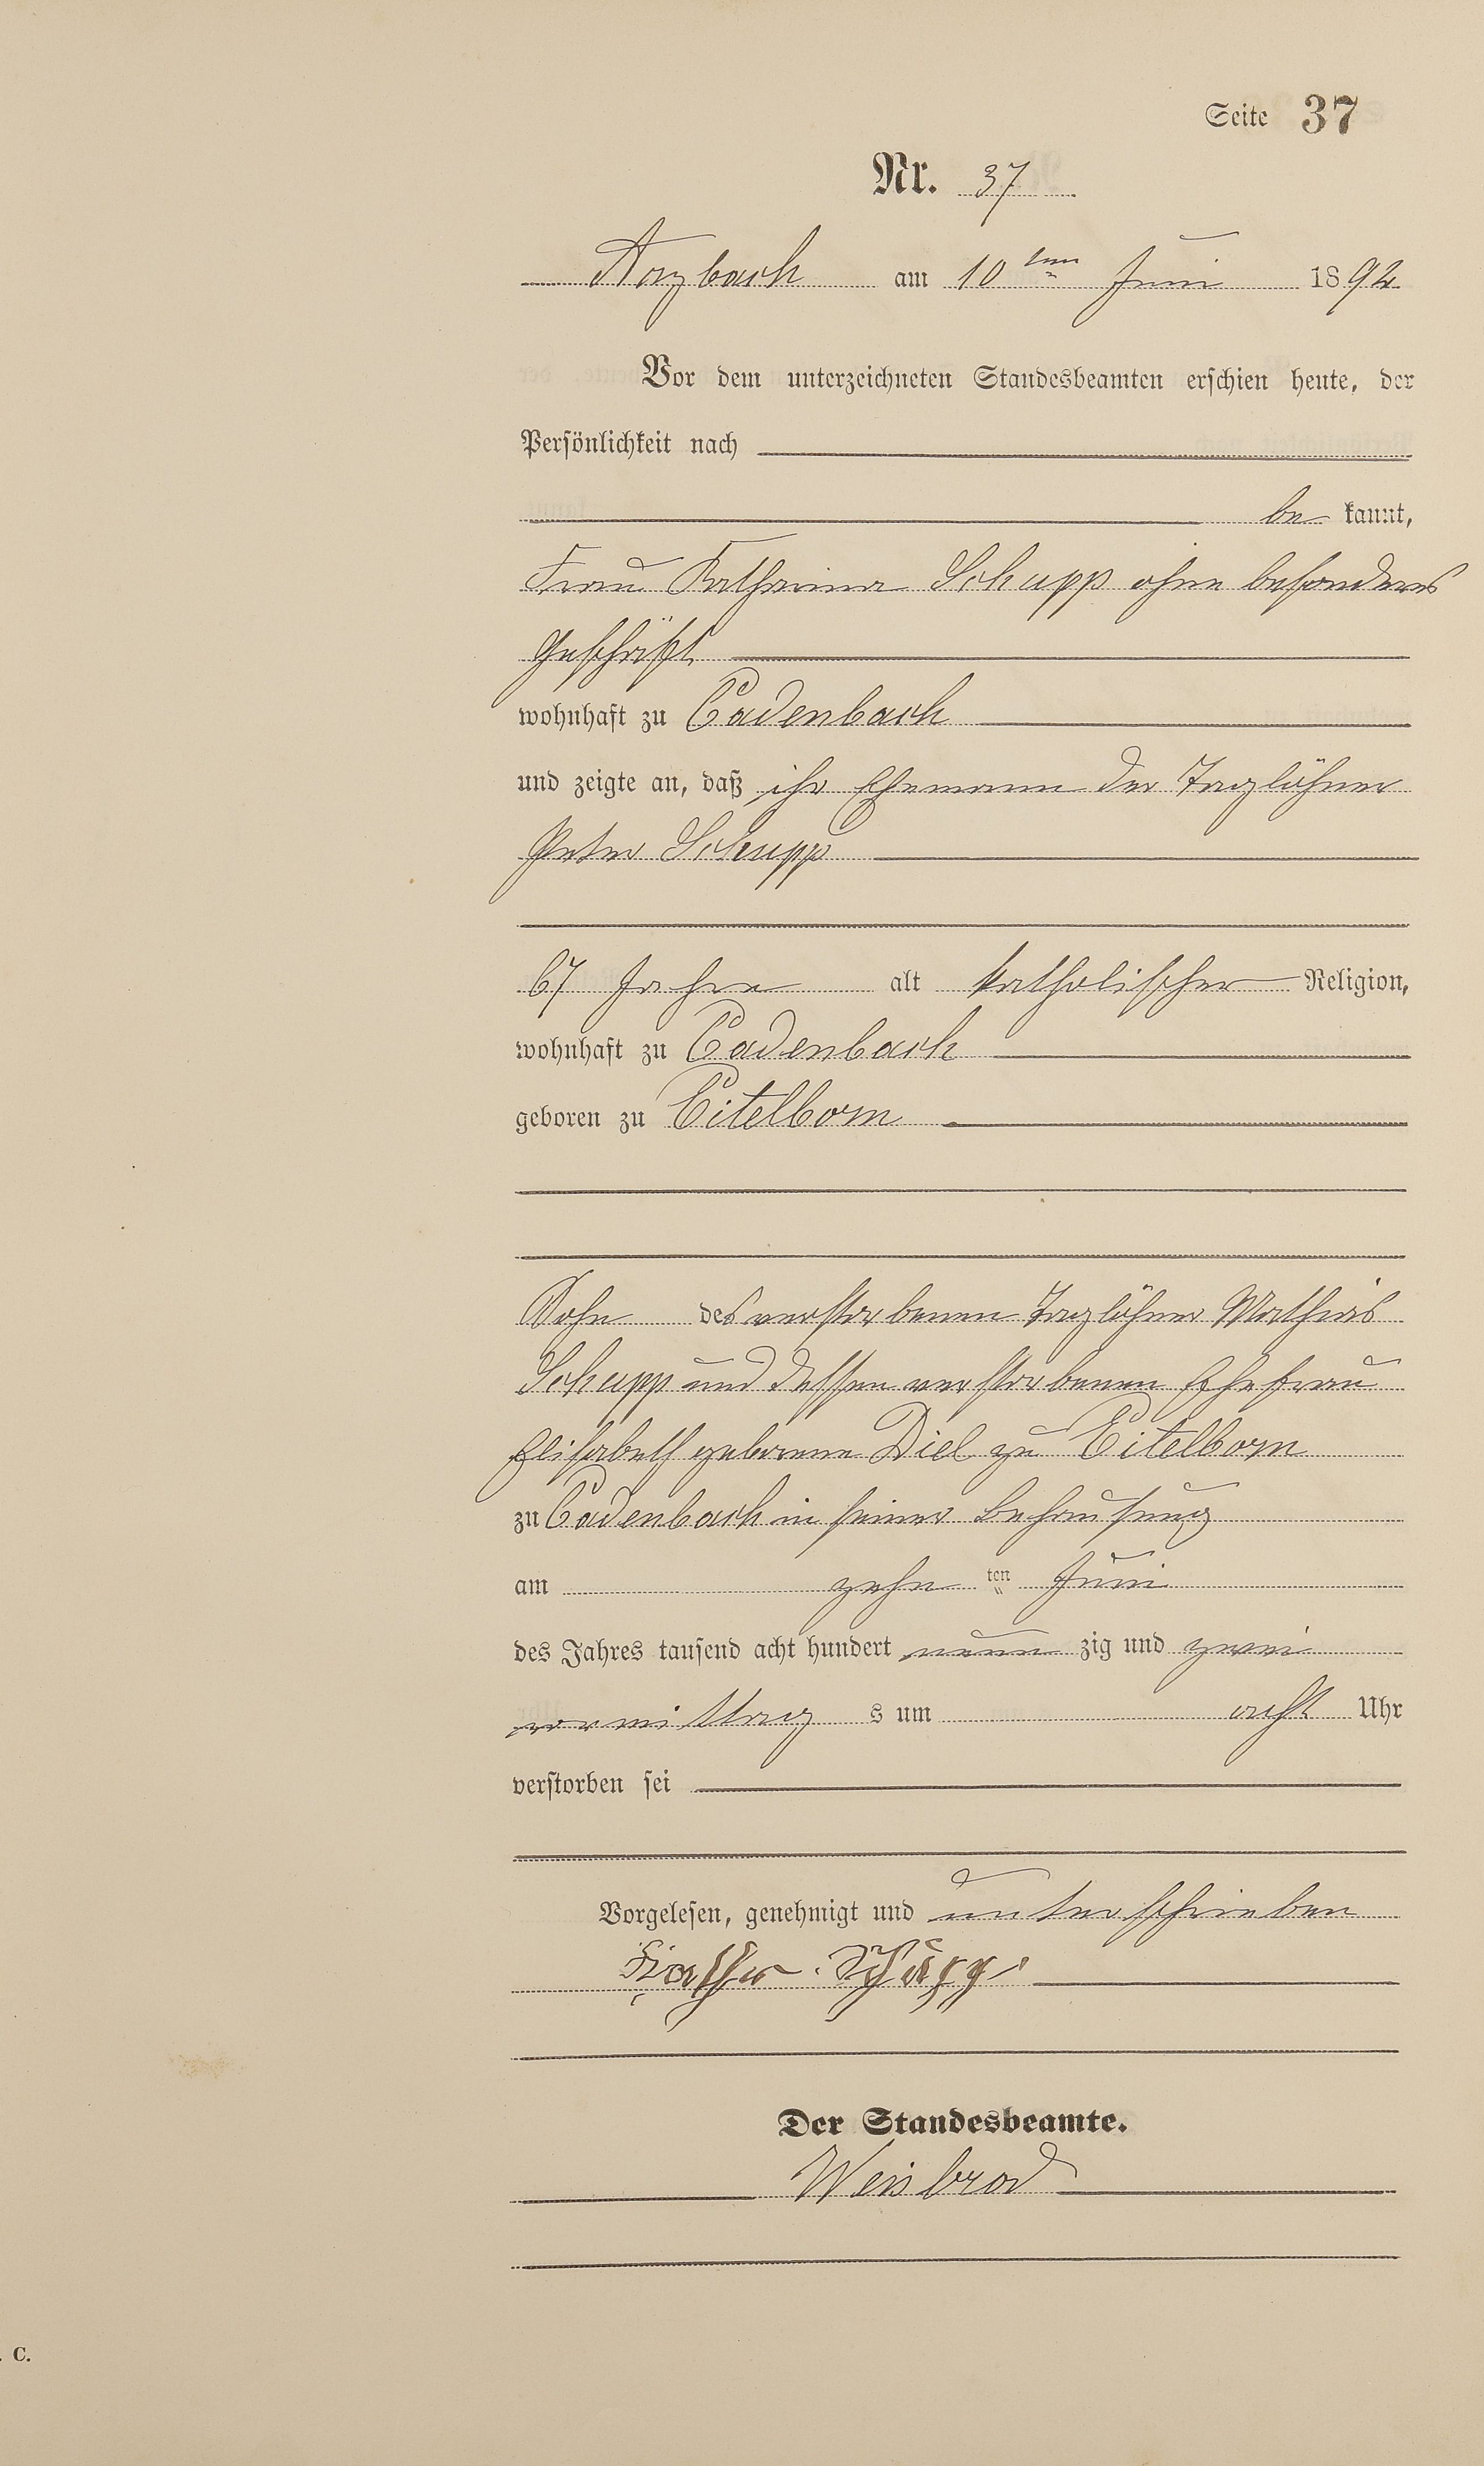 Seite 37
Nr. 37
Arzbach am 10ten Juni 1892
Vor dem unterzeichneten Standesbeamten erschien heute, der
Persönlichkeit nach
be kannt,
Frau Katharina Schupp ohne besonderes
Geschäft
wohnhaft zu Cadenbach
und zeigte an, daß ihr Ehemann der Taglöhner
Peter Schupp
67 Jahre alt katholischer Religion,
wohnhaft zu Cadenbach
geboren zu Eitelborn
Sohn des verstorbenen Taglöhner Mathias
Schupp und dessen verstorbenen Ehefrau
Elisabeth geborene Diel zu Eitelborn
zu Cadenbach in seiner Behausung
am zehn ten Juni
des Jahres tausend acht hundert neun zig und zwei
vormittag s um acht Uhr
verstorben sei
Vorgelesen, genehmigt und unterschrieben
Schupp
Der Standesbeamte.
Weisbrod
. C.